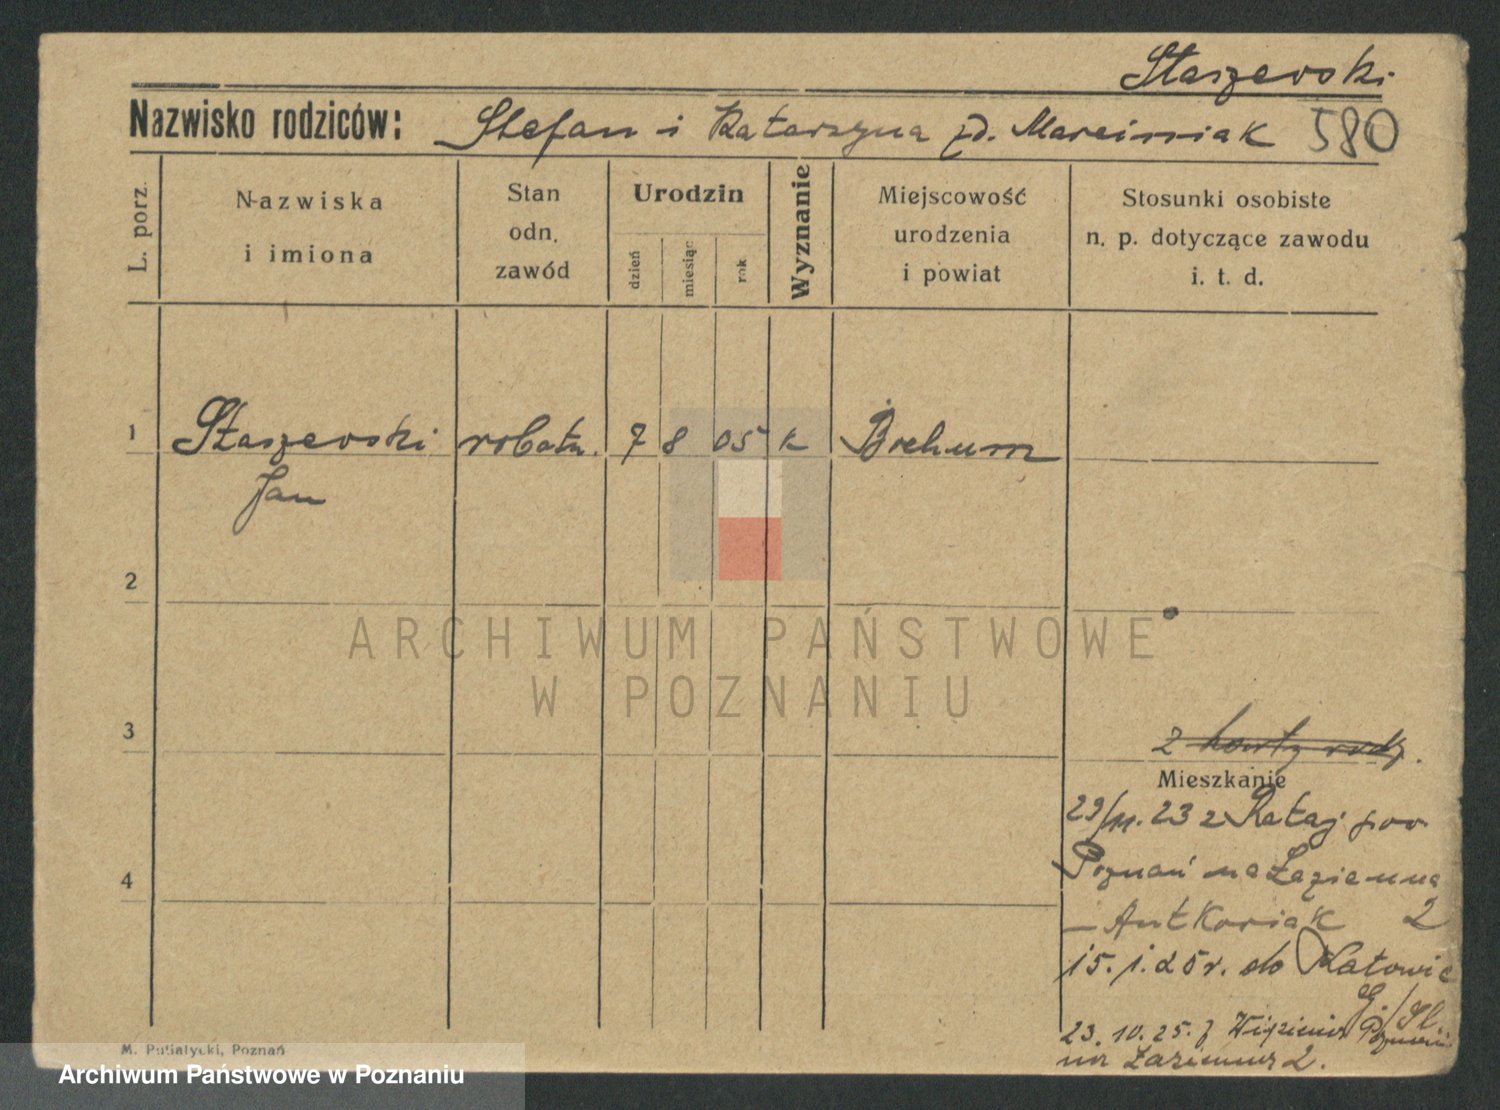 Staszewski
Nazwisko rodziców: Stefan i Katarzyna zd. Marciniak 580
L. porz. Nazwiska i imiona Stan odn. zawód Urodzin dzień miesiąc rok Wyznanie Miejscowość urodzenia i powiat Stosunki osobiste n. p. dotyczące zawodu i. t. d.
1 Staszewski robotn. 7 8 05 k Bochum
Jan
2
ARCHIWUM PAŃSTWOWE
W POZNANIU
3 z karty rodz.
Mieszkanie
29/11. 23 z Rataj pow
Poznań na Łazienna
4
— Antkowiak 2
15. 1. 25 r. do Katowic
23. 10. 25. z Poznania
2.
M. Putiatycki, Poznań
Archiwum Państwowe w Poznaniu